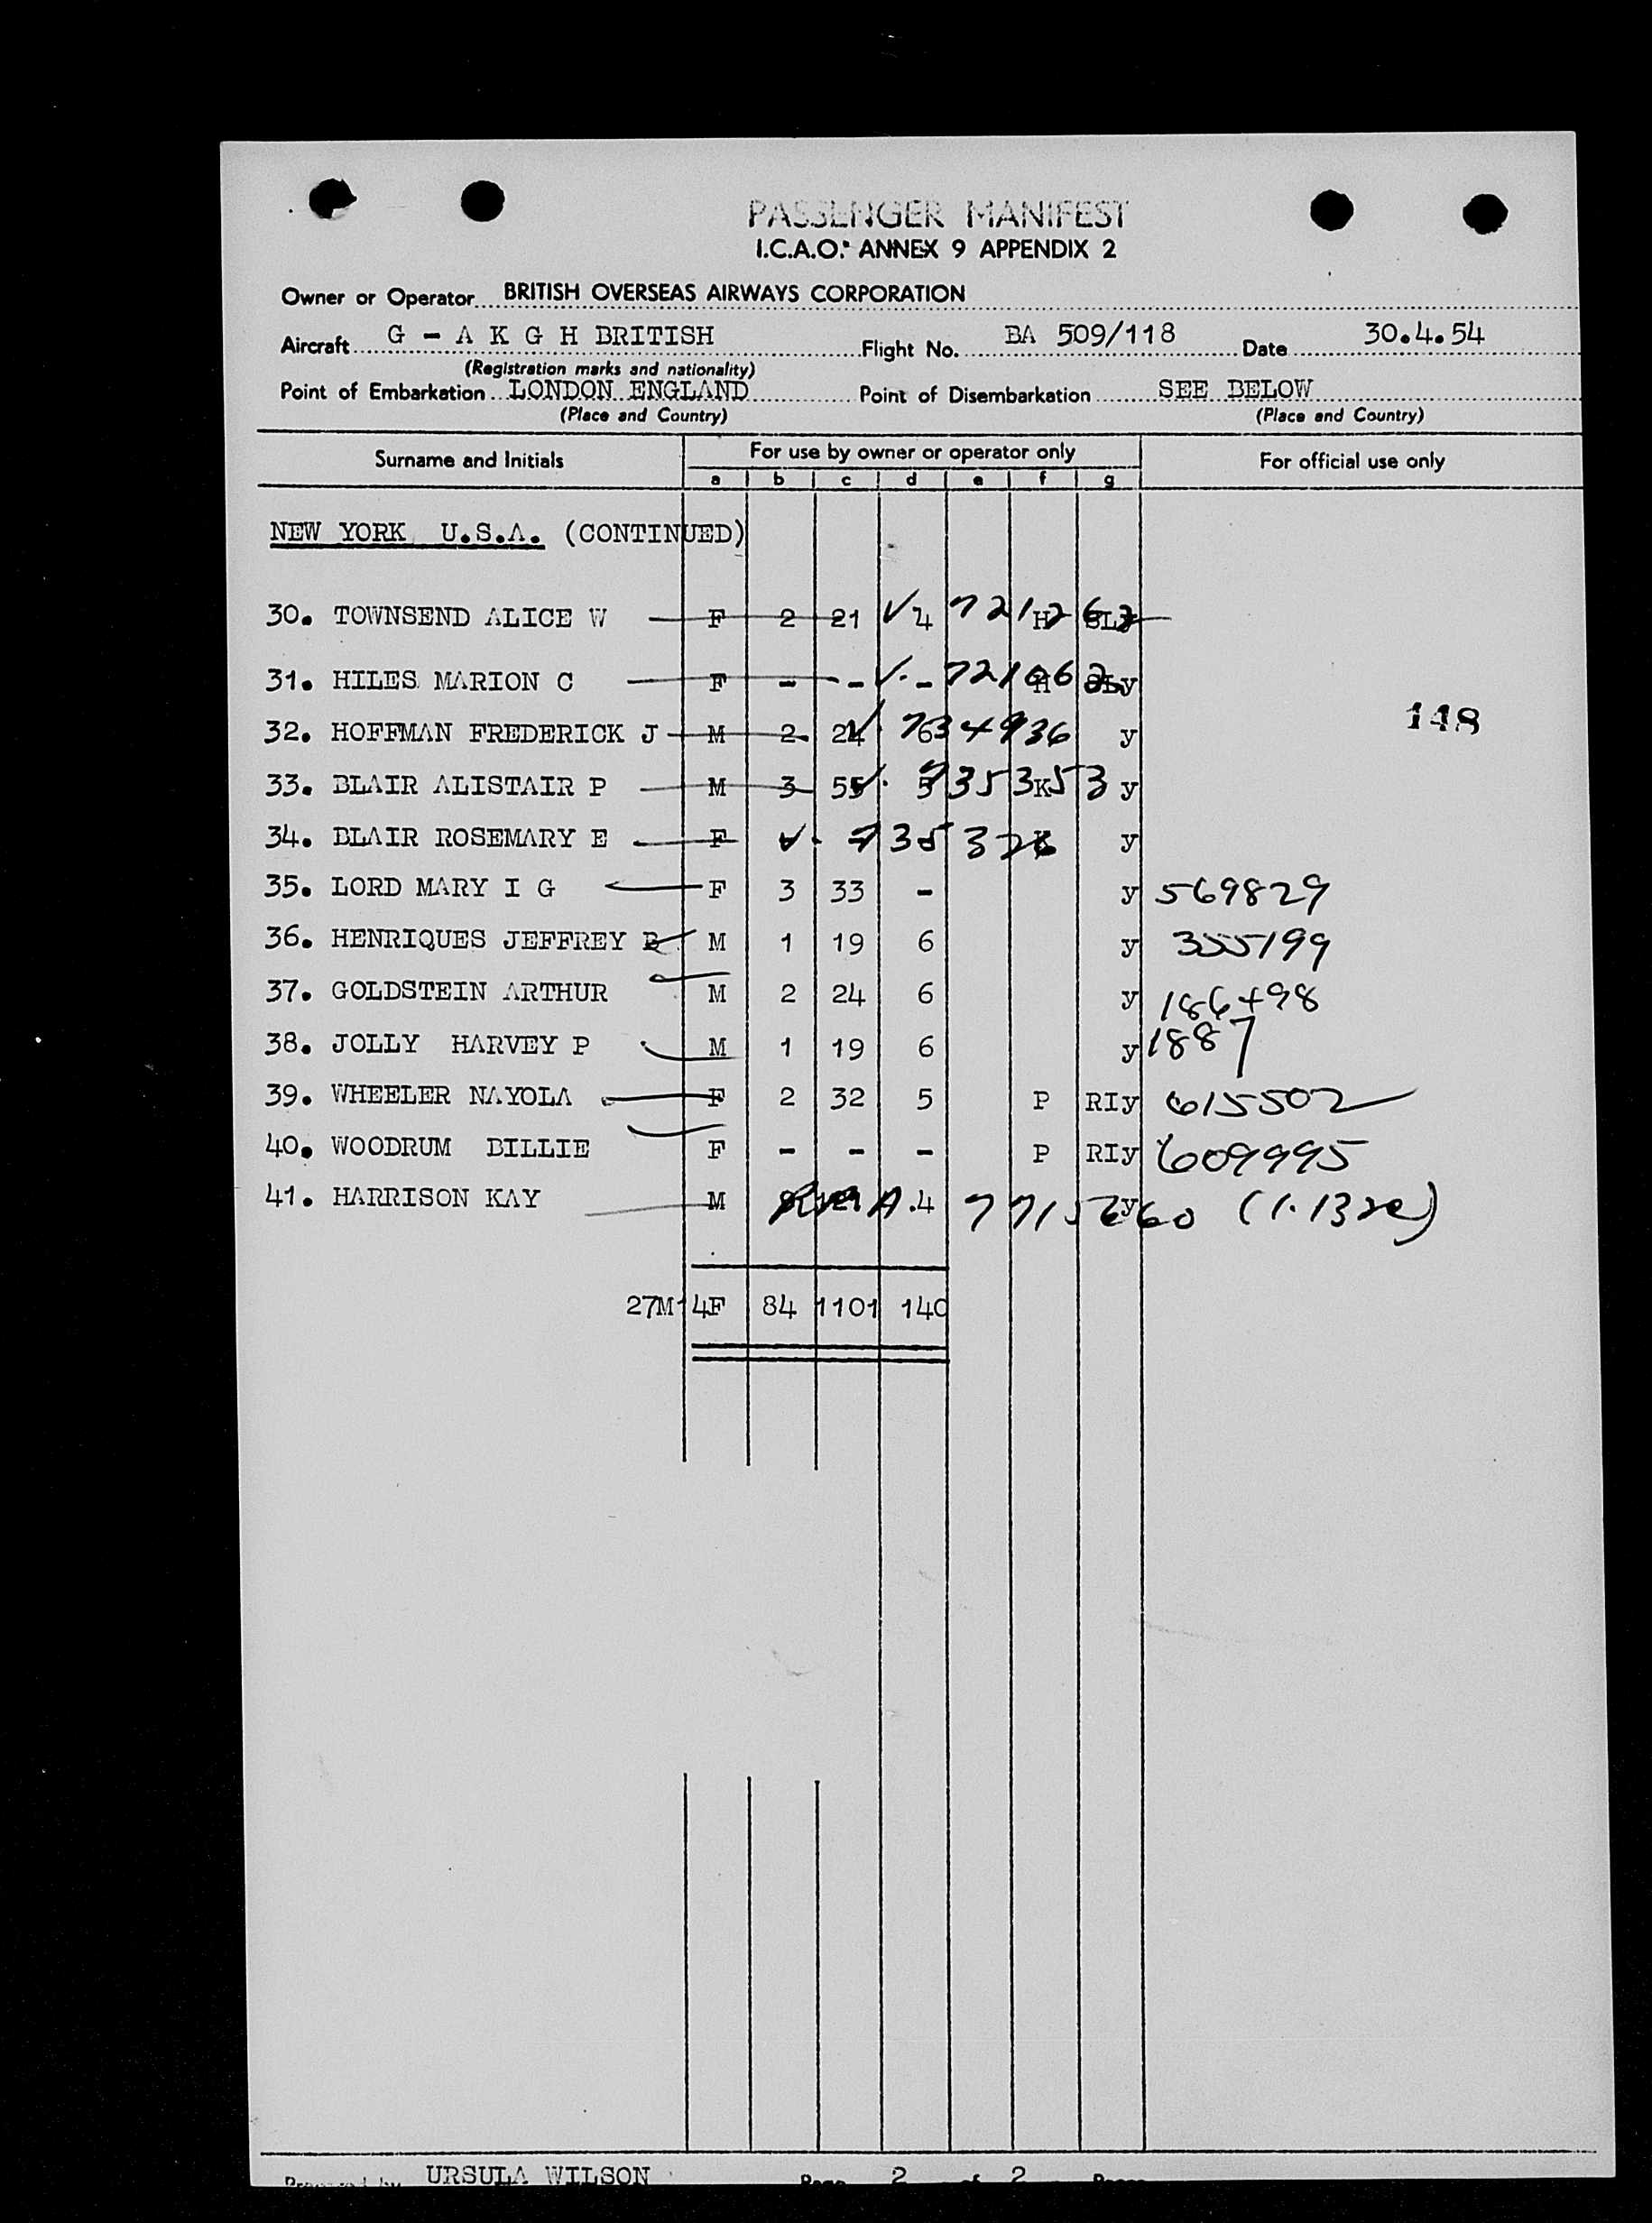 PASSENGER MANIFEST
I.C.A.O. ANNEX 9 APPENDIX 2
Owner or Operator BRITISH OVERSEAS AIRWAYS CORPORATION
Aircraft G - A K G H BRITISH Flight No. BA 509/118 Date 30.4.54
(Registration marks and nationality)
Point of Embarkation LONDON ENGLAND Point of Disembarkation SEE BELOW
(Place and Country) (Place and Country)
Surname and Initials For use by owner or operator only For official use only
a b c d e f g
NEW YORK U.S.A. (CONTINUED)
30. TOWNSEND ALICE W F 2 21 4 H
31. HILES MARION C F - - - H y
148
32. HOFFMAN FREDERICK J M 2 24 6 734936 y
33. BLAIR ALISTAIR P M 3 55 5 735353 K y
34. BLAIR ROSEMARY E F K y
35. LORD MARY I G F 3 33 - y 569829
36. HENRIQUES JEFFREY R M 1 19 6 y 355199
37. GOLDSTEIN ARTHUR M 2 24 6 y 186498
38. JOLLY HARVEY P M 1 19 6 y 1887
39. WHEELER NAYOLA F 2 32 5 P RIy 615502
40. WOODRUM BILLIE F - - - P RIy 609995
41. HARRISON KAY M 4 y
27M14F 84 1101 140
Prepared by URSULA WILSON Page 2 of 2 Pages